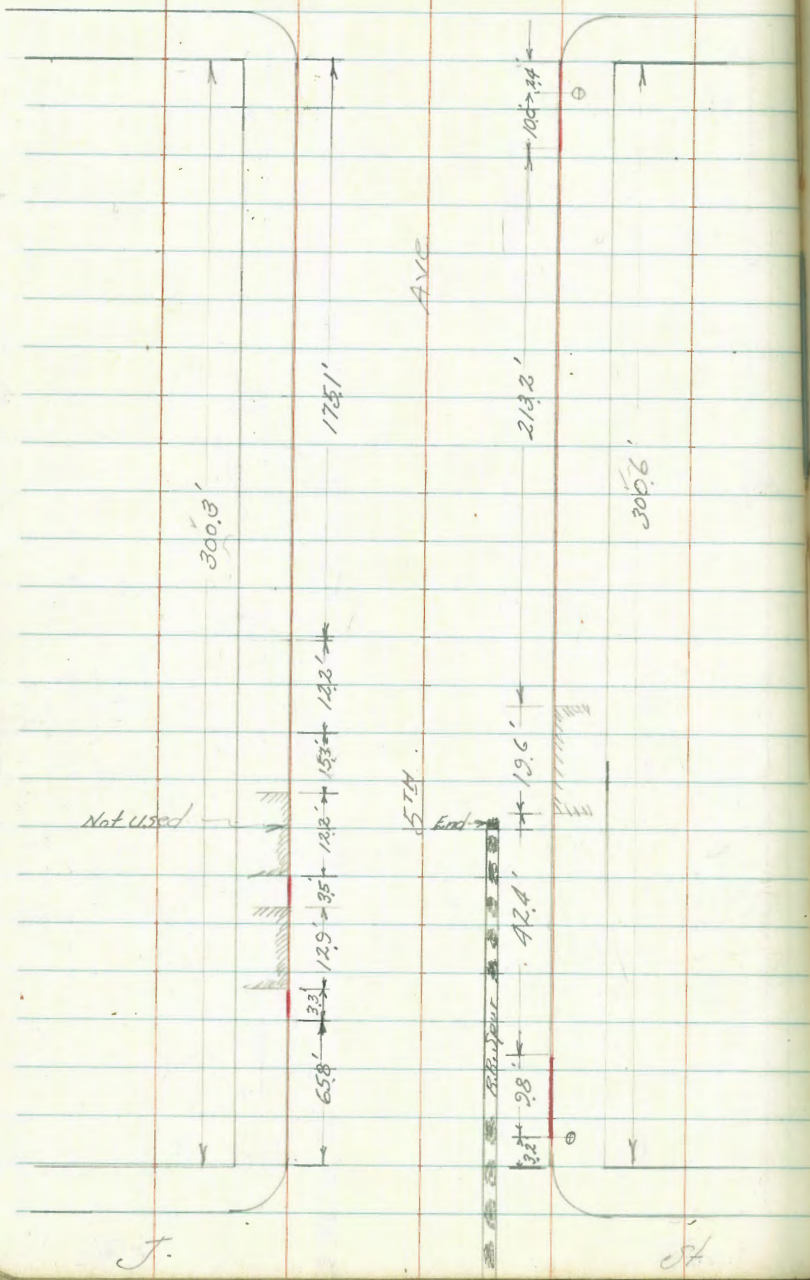 300.3'
175.1'
12.2'
15.3'
12.2'
3.5'
12.9'
3.3'
65.8'
Not Used
5TH Ave
End
R.R. Spur
2.4'
10.0'
213.2'
19.6'
42.4'
9.8'
3.2'
300.6'
J. St.